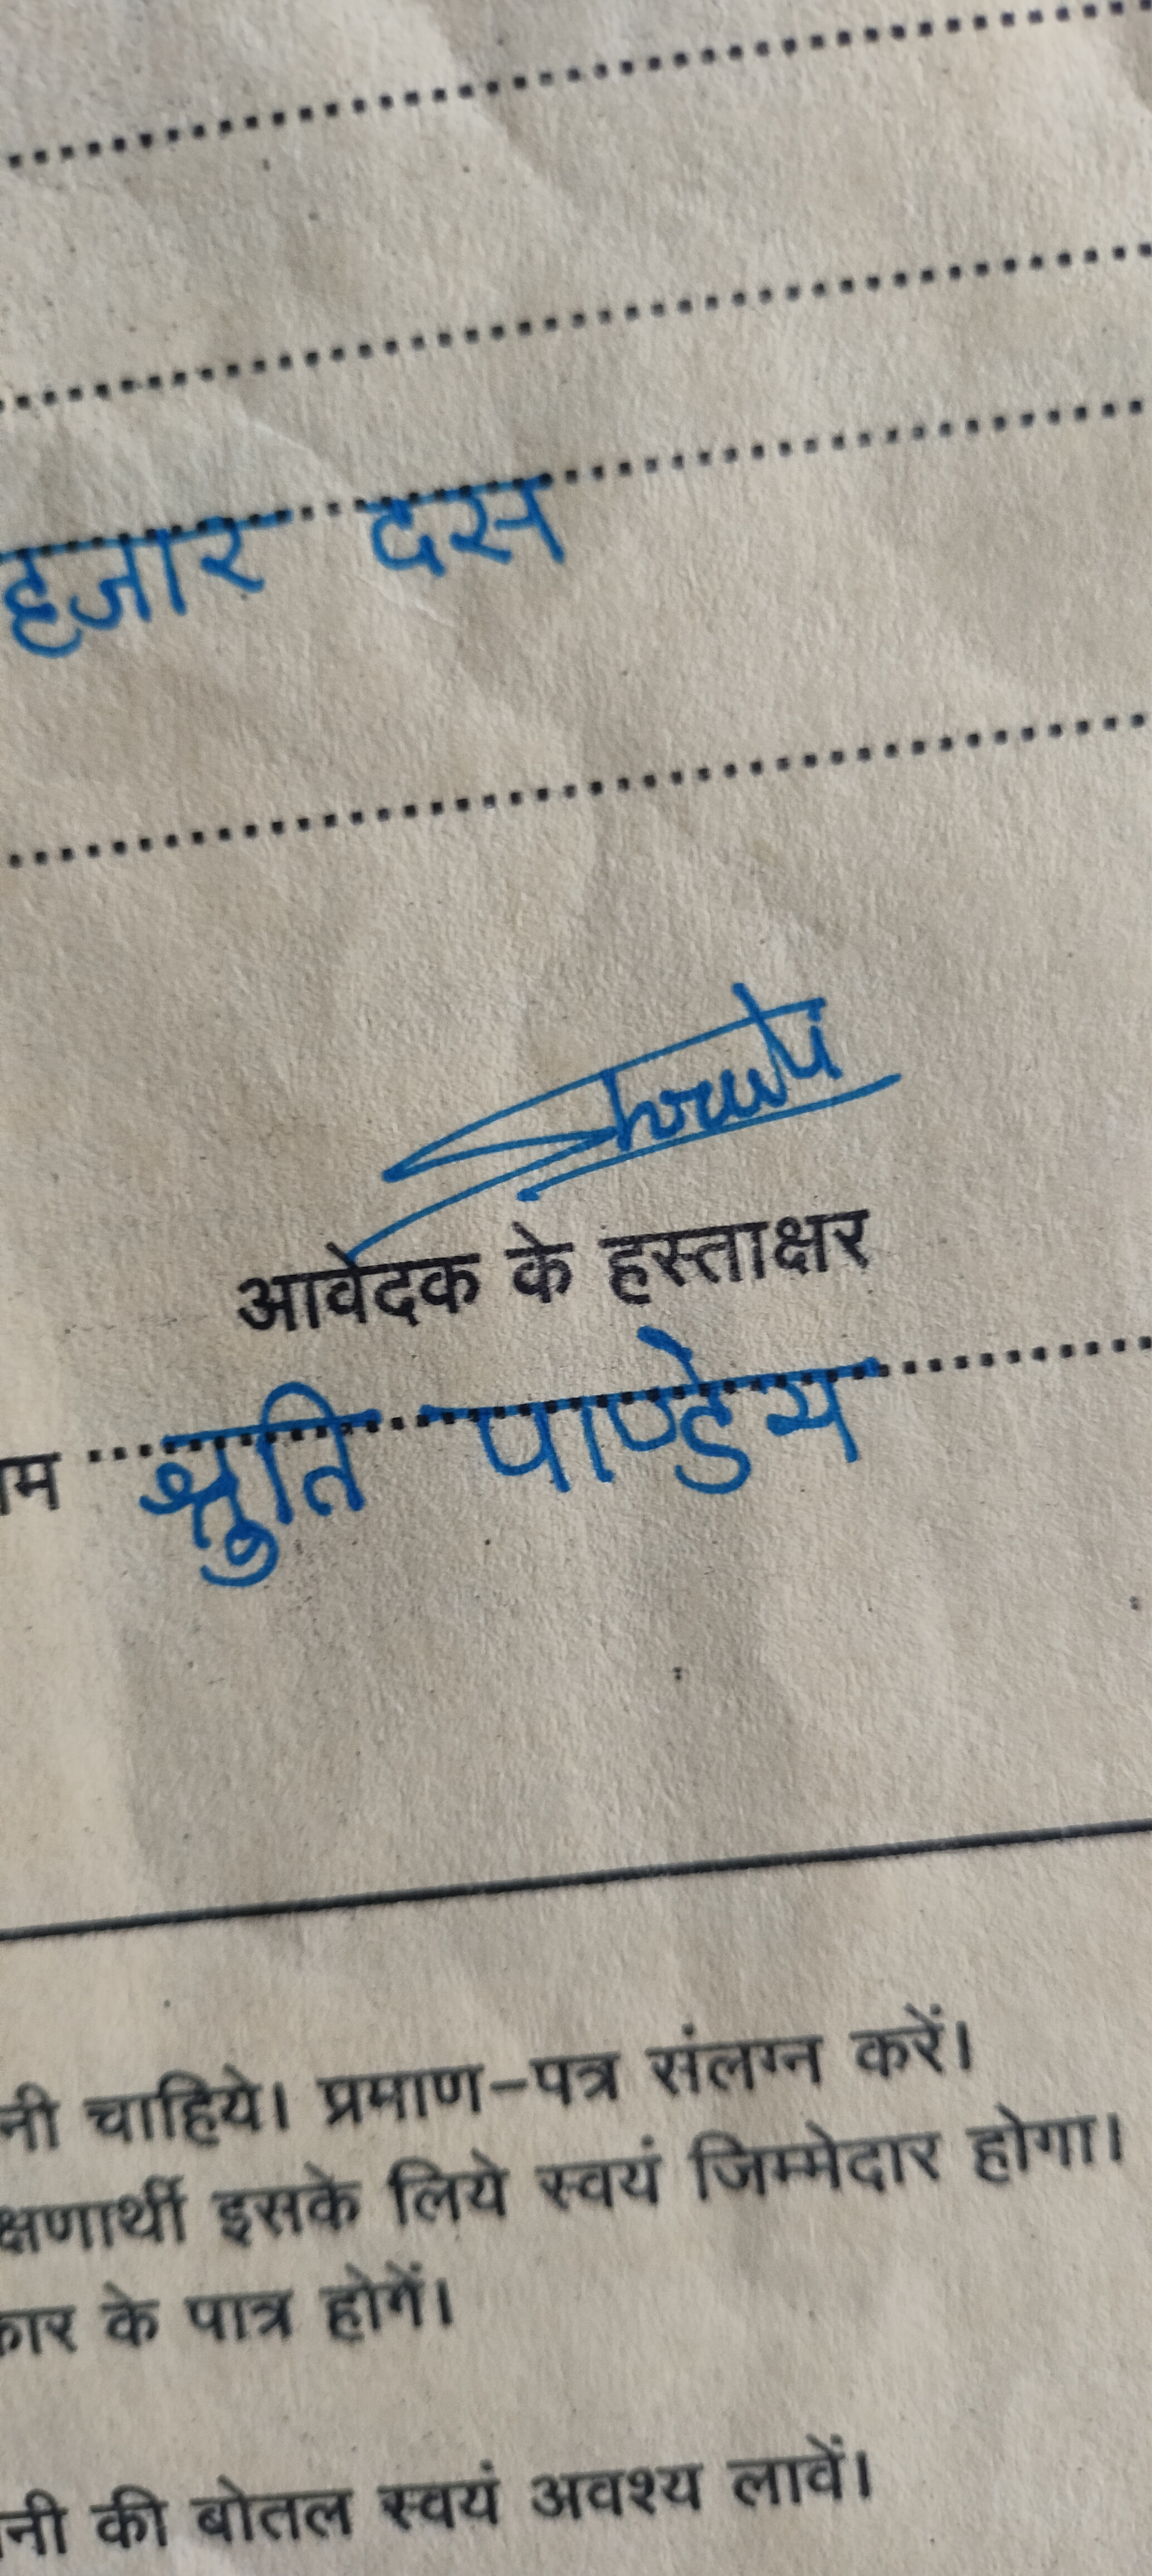 हजार दस
Shruti
आवेदक के हस्ताक्षर
श्रुति पाण्डेय
चाहिये। प्रमाण-पत्र संलग्न करें।
इसके लिये स्वयं जिम्मेदार होगा।
के पात्र होगें।
की बोतल स्वयं अवश्य लावें।